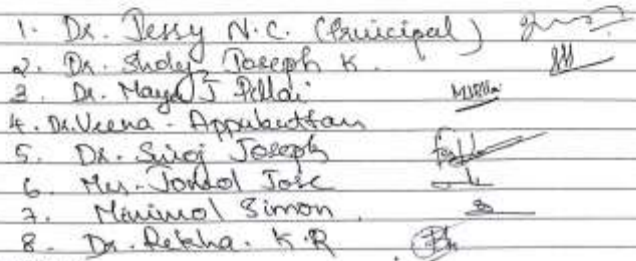 1. Dr. Jessy N.C. (Principal)
2. Dr. Sholy Joseph K.
3. Dr. Maya J Pillai
4. Dr. Veena - Appukuttan
5. Dr. Siroj Joseph
6. Mrs. Jomol Jose
7. Minimol Simon
8. Dr. Rekha. K.R